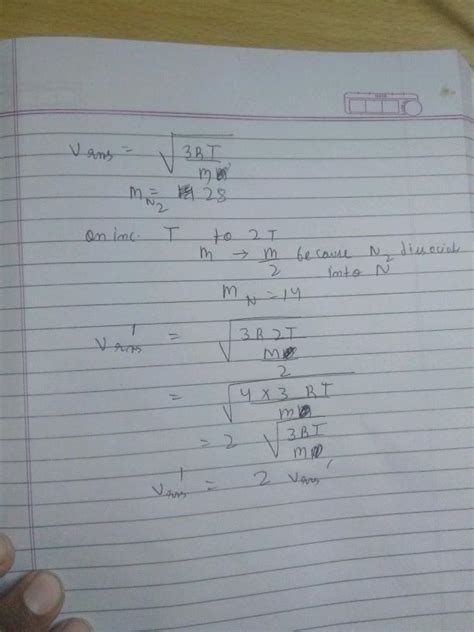 Vrms = √(3RT/m)
m N₂ = 28
On inc. T to 2T
m → m/2 because N₂ dissociate
into N
m N = 14
V'rms = √(3R2T/(m/2))
= √(4 x 3 RT/m)
= 2 √(3RT/m)
V'rms = 2 Vrms